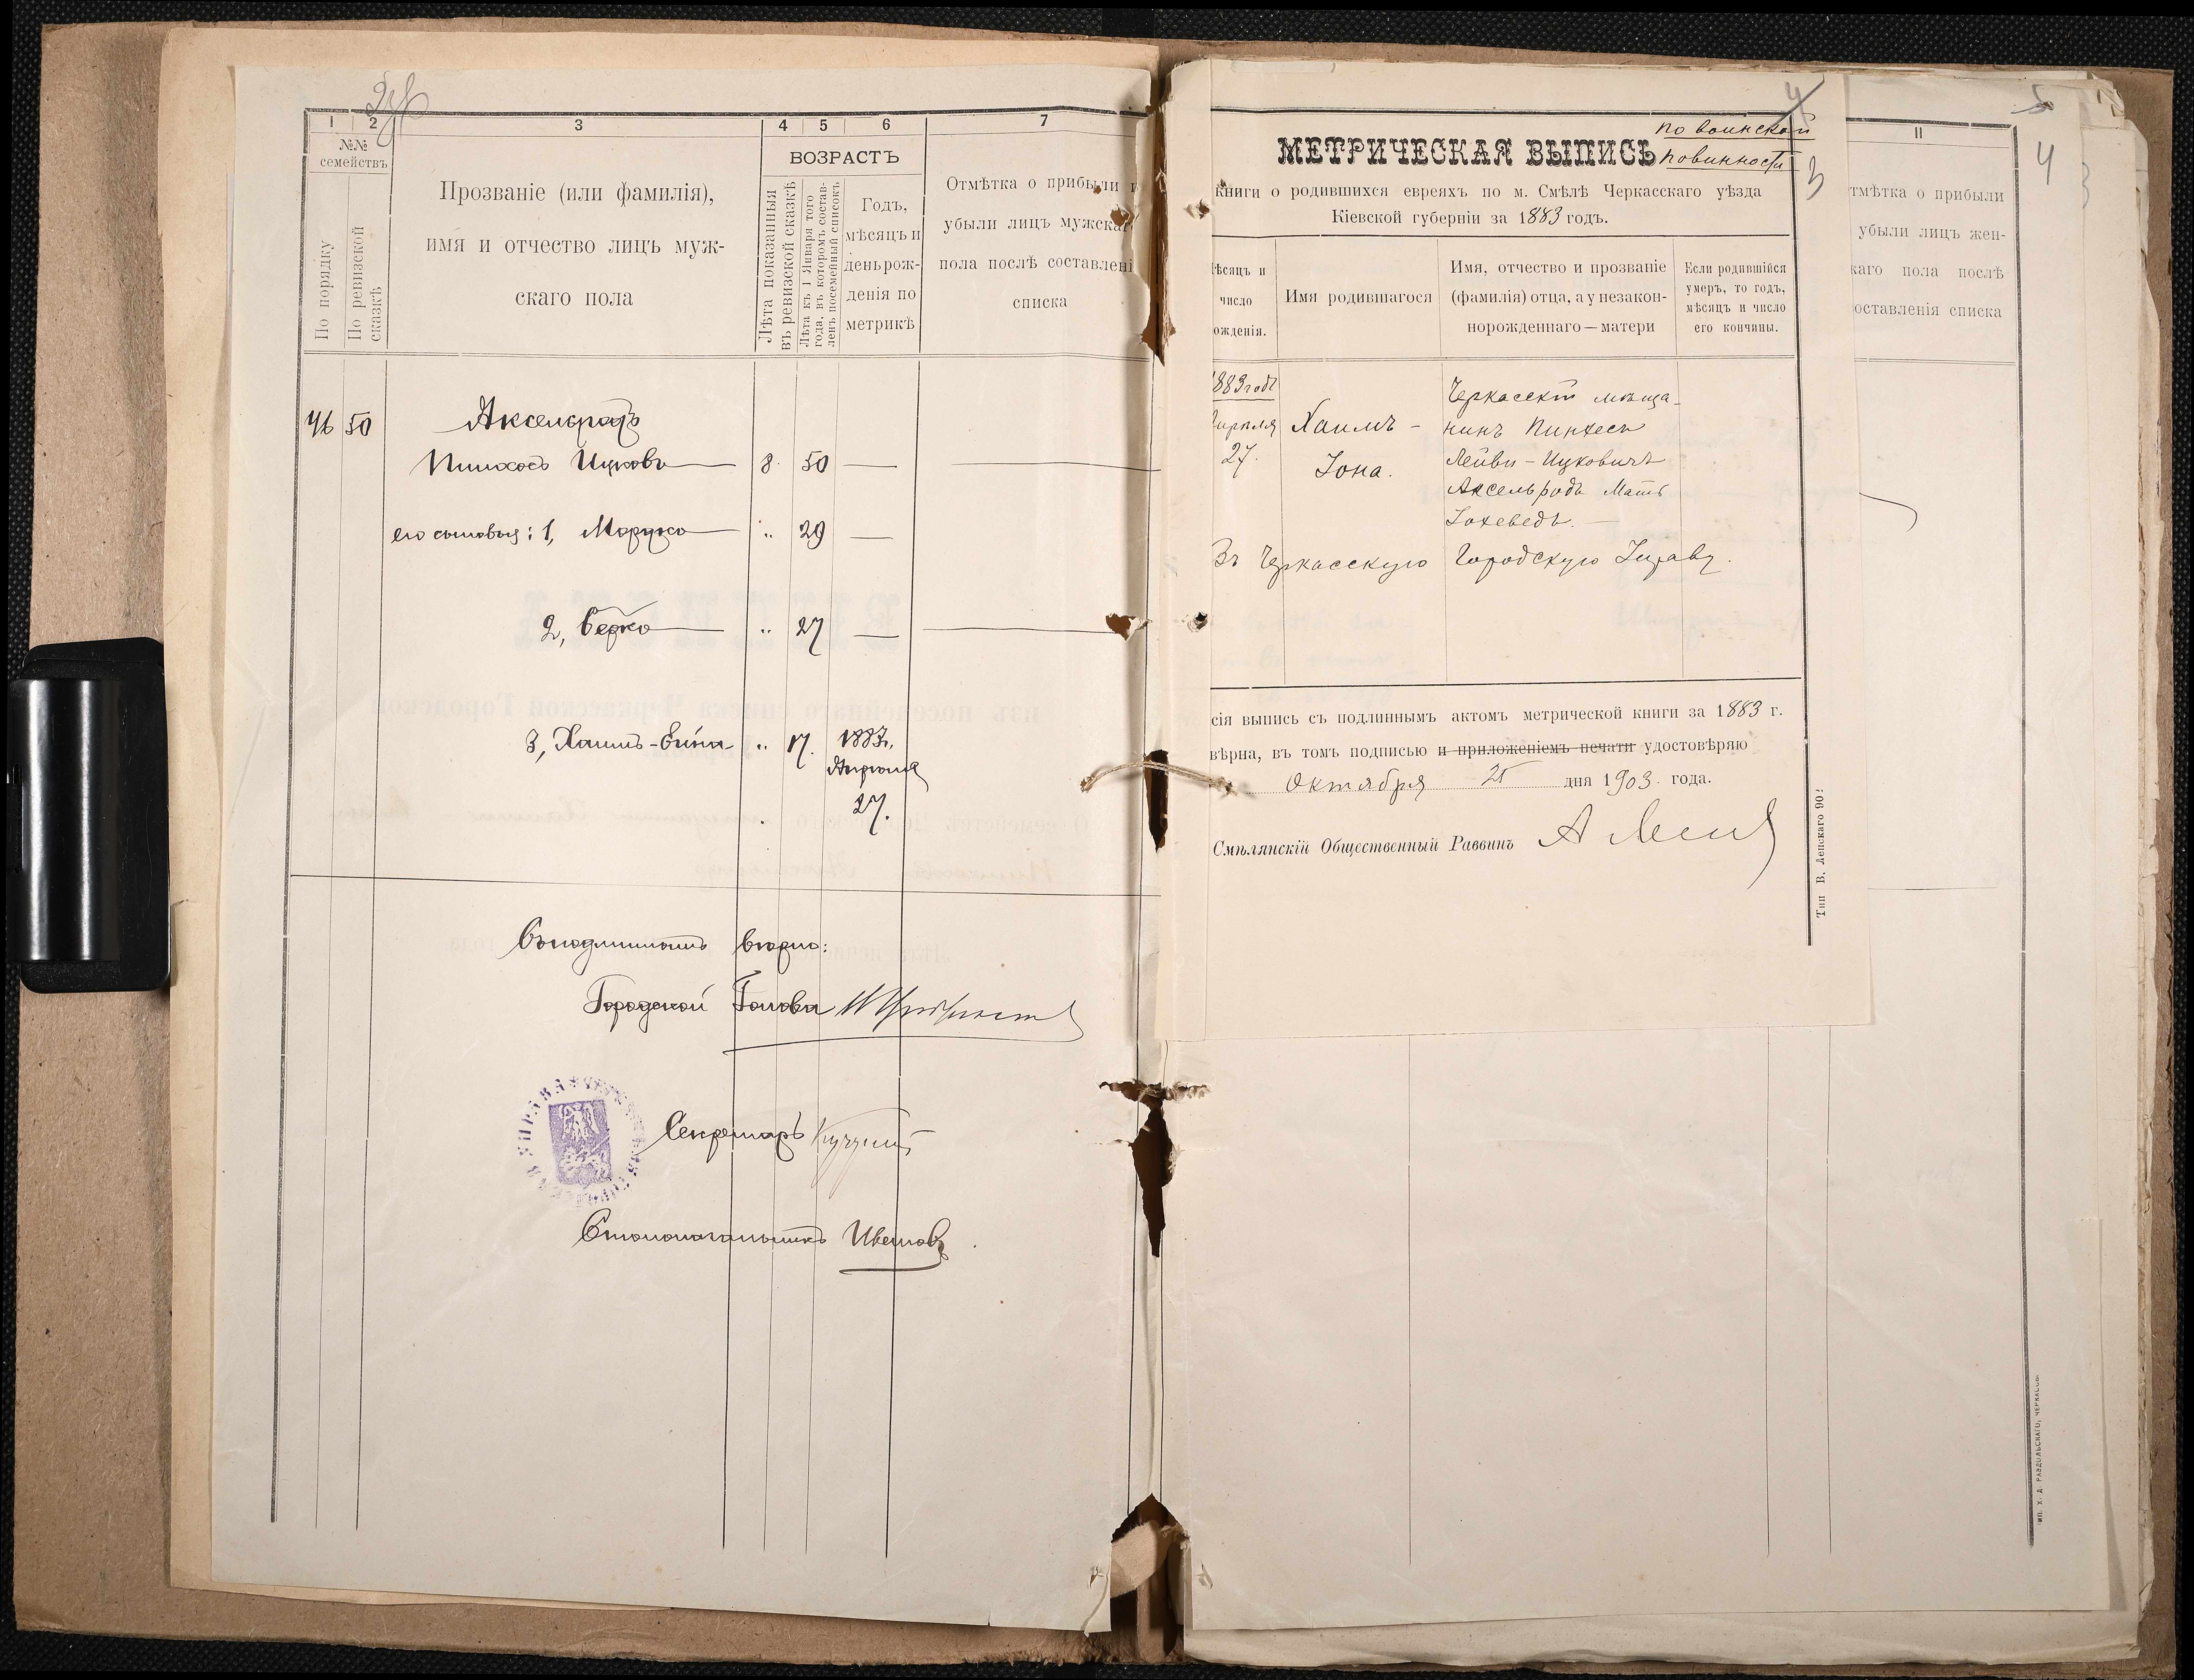 1
2
3
4
5
6
7
№№
семействъ
По порядку
По ревизской
сказкѣ
Прозваніе (или фамилія),
имя и отчество лицъ муж-
скаго пола
ВОЗРАСТЪ
Лѣта показанныя
въ ревизской сказкѣ
Лѣта къ 1 Января того
года, въ которомъ состав-
ленъ посемейный списокъ
Годъ,
мѣсяцъ и
день рож-
денія по
метрикѣ
Отмѣтка о прибыли и
убыли лицъ мужска
пола послѣ составлені
списка
46 50 Аксельратъ
Пинхосъ Ицковъ 8. 50 —
его сыновья: 1, Мордко „ 29 —
2, Берко „ 27 —
3, Хаимъ- „ 17. 1883,
Апрѣля
27.
Съ подлиннымъ вѣрно:
Городской Голова
Секретарь
Столоначальникъ
4
3
по воинской
МЕТРИЧЕСКАЯ ВЫПИСЬ повинности
книги о родившихся евреяхъ по м. Смѣлѣ Черкасскаго уѣзда
Кіевской губерніи за 1883 годъ.
ѣсяцъ и
число
ожденія.
Имя родившагося
Имя, отчество и прозваніе
(фамилія) отца, а у незакон-
норожденнаго — матери
Если родившійся
умеръ, то годъ,
мѣсяцъ и число
его кончины.
1883 годъ
Апрѣля
27.
Хаимъ -
Іона.
Черкасскій мѣща-
нинъ Пинхесъ
Лейви-Ицковичъ
Аксельродъ Мать
Іохеведъ. —
Въ Черкасскую Городскую Управу.
сія выпись съ подлиннымъ актомъ метрической книги за 1883 г.
вѣрна, въ томъ подписью и приложеніемъ печати удостовѣряю
Октября 25 дня 1903 года.
Смѣлянскій Общественный Раввинъ
Тип В. Лепскаго 902
5
4
3
11
тмѣтка о прибыли
убыли лицъ жен-
каго пола послѣ
оставленія списка
ТИП. Х. Д. РАЗДОЛЬСКАГО, ЧЕРКАССЫ